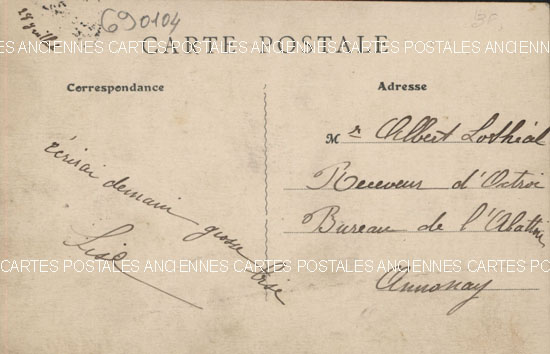 690104
CARTE POSTALE
CARTES POSTALES ANCIENNES CARTES POSTALES ANCIENNES CARTES POSTALES ANCIENNES
Correspondance
écrirai demain grosse bise
Lise
Adresse
Mr Albert Lothial
Receveur d'Octroi
Bureau de l'Abattoir
Annonay
CARTES POSTALES ANCIENNES CARTES POSTALES ANCIENNES CARTES POSTALES ANCIENNES